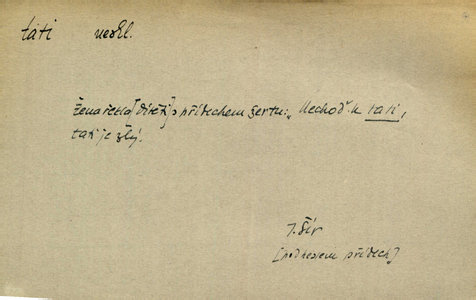 táti neskl.
Žena řekla [dítěti] s přídechem žertu: „Nechoď k tati,
tati je zlý.
J. Šír
[pod heslem přídech]